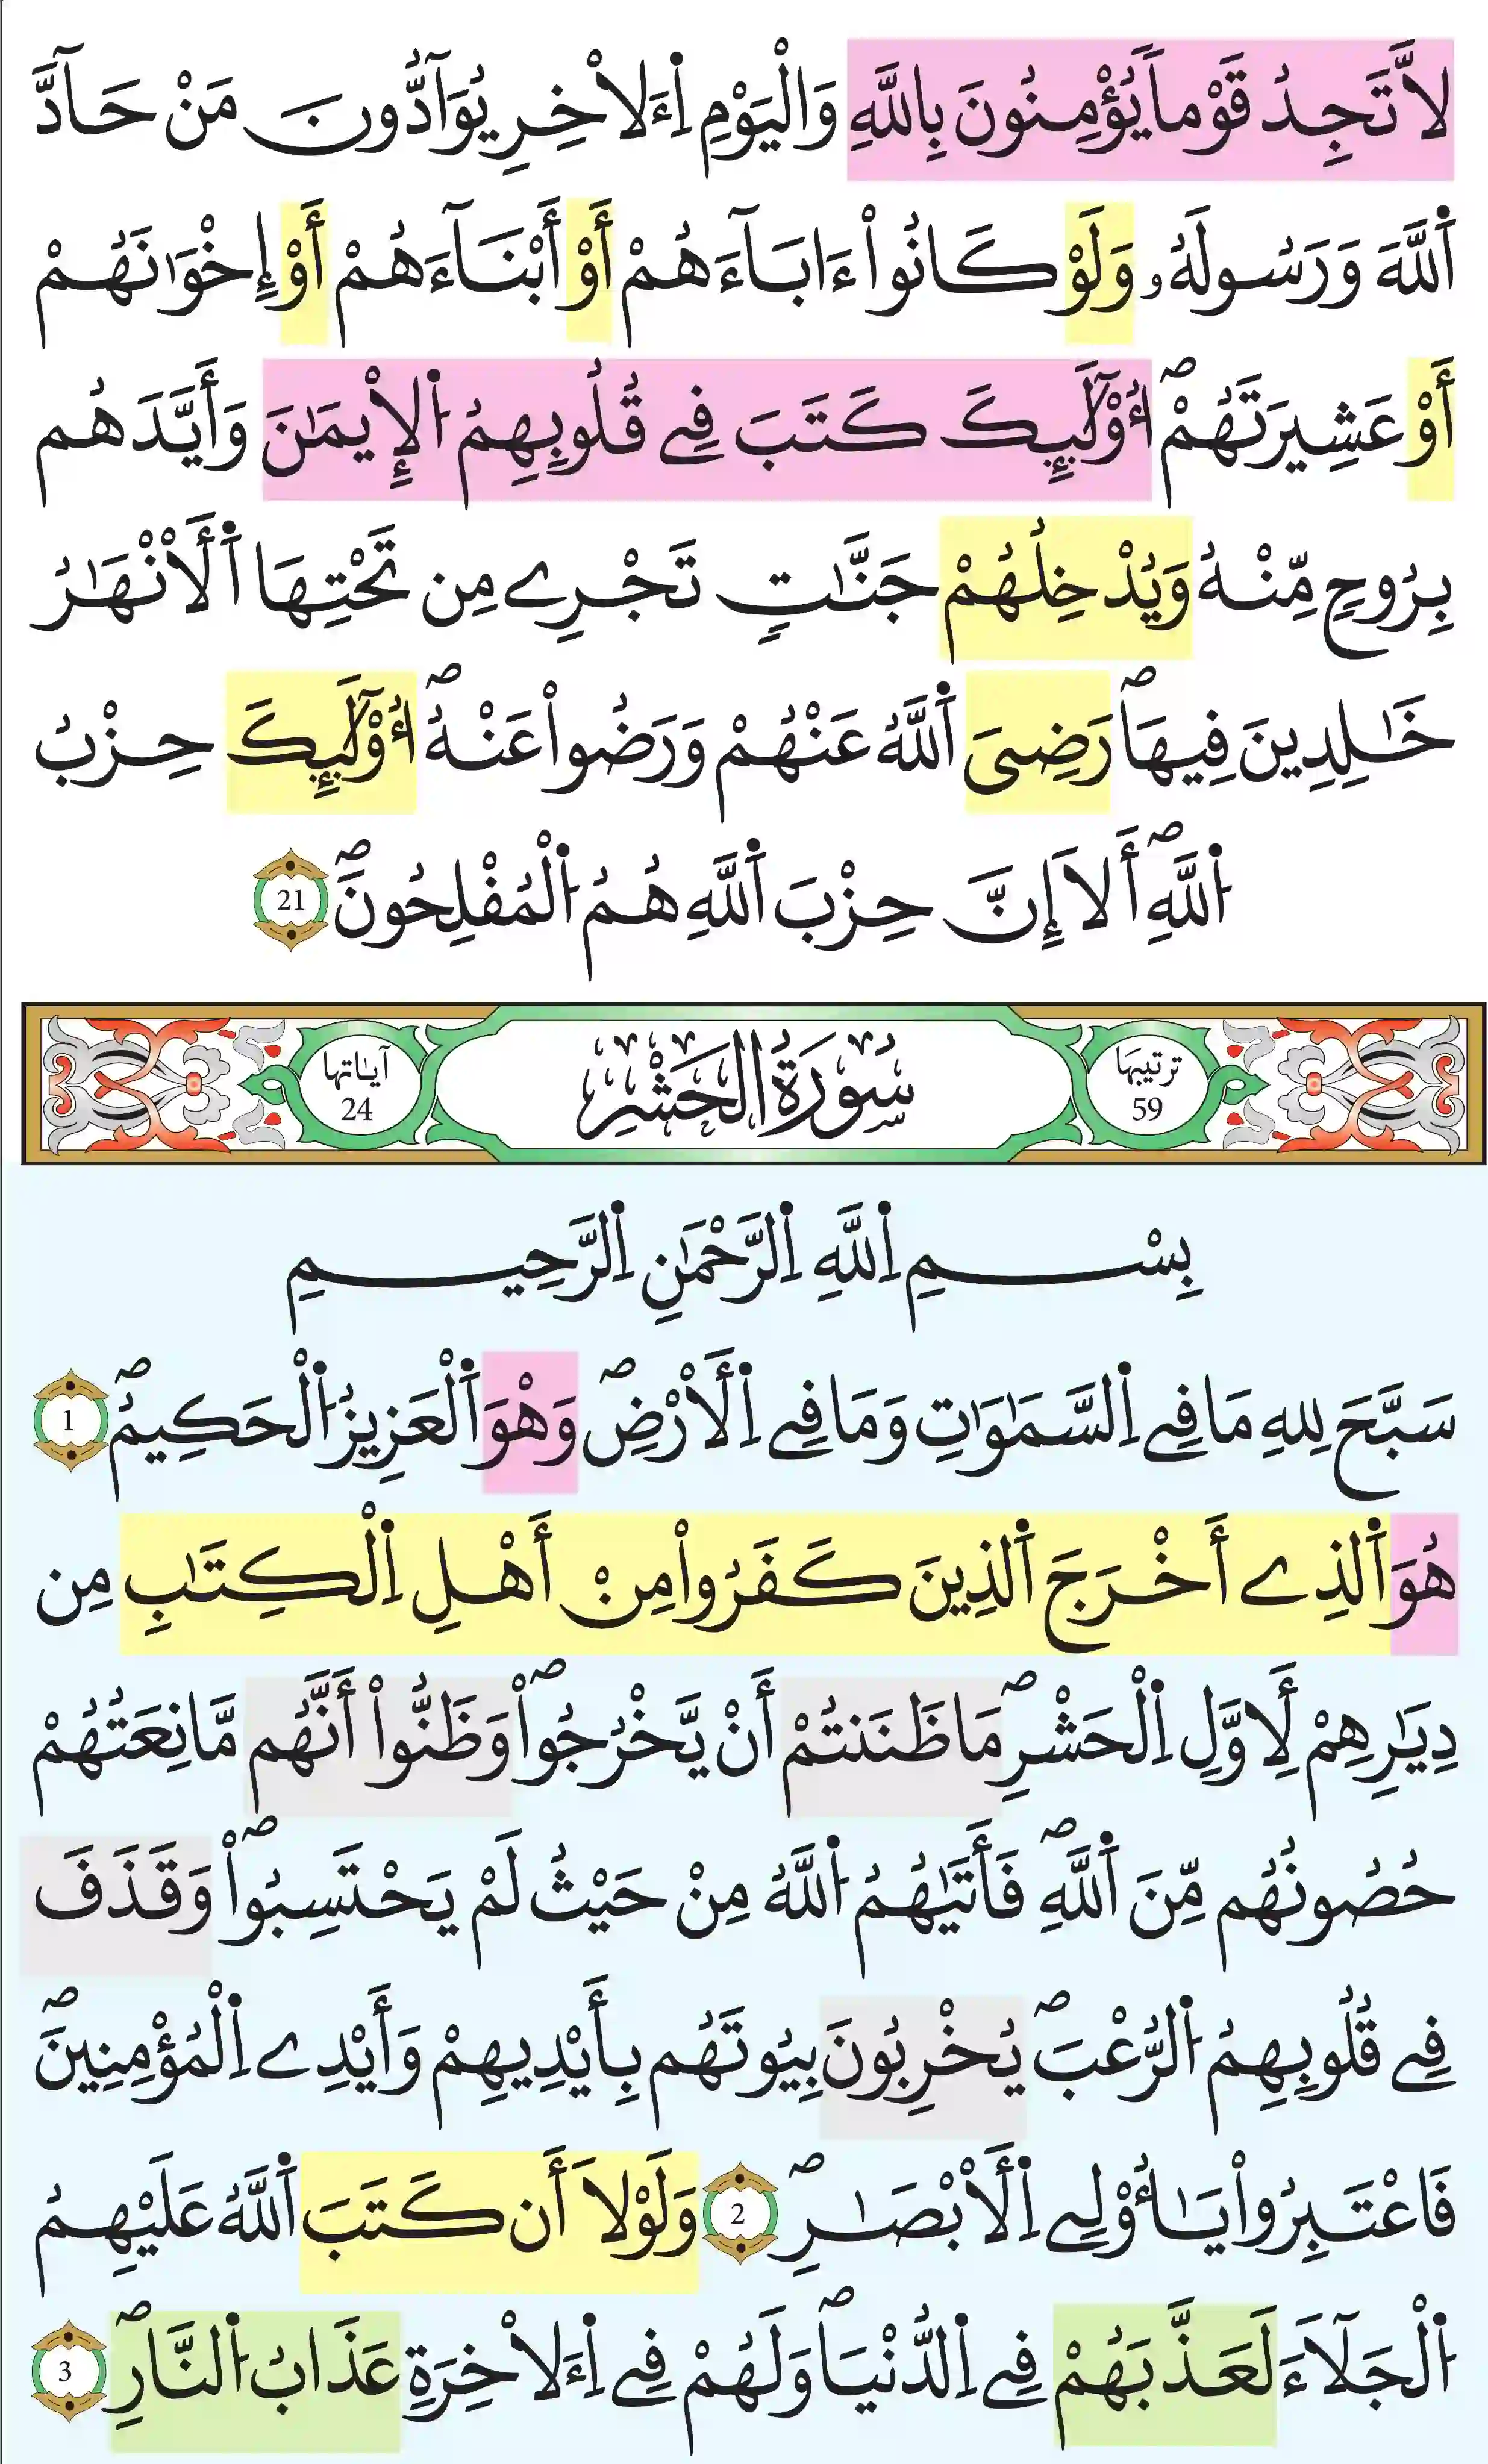 لَّا تَجِدُ قَوْماً يُؤْمِنُونَ بِاللَّهِ وَالْيَوْمِ اِءَلَاخِرِ يُوَآدُّونَ مَنْ حَآدَّ
اَللَّهَ وَرَسُولَهُۥ وَلَوْ كَانُواْ ءَابَآءَهُمْ أَوْ أَبْنَآءَهُمْ أَوْ إِخْوَٰنَهُمْ
أَوْ عَشِيرَتَهُمْۖ أُوْلَٰٓئِكَ كَتَبَ فِے قُلُوبِهِمُ اُلْإِيمَٰنَ وَأَيَّدَهُم
بِرُوحٍ مِّنْهُ وَيُدْخِلُهُمْ جَنَّٰتٍ تَجْرِے مِن تَحْتِهَا اَلْأَنْهَٰرُ
خَٰلِدِينَ فِيهَاۖ رَضِىَ اَللَّهُ عَنْهُمْ وَرَضُواْ عَنْهُۖ أُوْلَٰٓئِكَ حِزْبُ
اُللَّهِۖ أَلَا إِنَّ حِزْبَ اَللَّهِ هُمُ اُلْمُفْلِحُونَۖ 21
ترتيبها 59 سُورَةُ الحَشْرِ آياتها 24
بِسْمِ اِللَّهِ اِلرَّحْمَٰنِ اِلرَّحِيمِ
سَبَّحَ لِلهِ مَا فِے اِلسَّمَٰوَٰتِ وَمَا فِے اِلْأَرْضِۖ وَهْوَ اَلْعَزِيزُ اُلْحَكِيمُۖ 1
هُوَ اَلذِے أَخْرَجَ اَلذِينَ كَفَرُواْ مِنْ أَهْلِ اِلْكِتَٰبِ مِن
دِيَٰرِهِمْ لِأَوَّلِ اِلْحَشْرِۖ مَا ظَنَنتُمْ أَنْ يَّخْرُجُواْۖ وَظَنُّواْ أَنَّهُم مَّانِعَتُهُمْ
حُصُونُهُم مِّنَ اَللَّهِۖ فَأَتَىٰهُمُ اُللَّهُ مِنْ حَيْثُ لَمْ يَحْتَسِبُواْۖ وَقَذَفَ
فِے قُلُوبِهِمُ اُلرُّعْبَۖ يُخْرِبُونَ بِيُوتَهُم بِأَيْدِيهِمْ وَأَيْدِے اِلْمُؤْمِنِينَۖ
فَاعْتَبِرُواْ يَٰأُوْلِے اِلْأَبْصَٰرِۖ 2 وَلَوْلَا أَن كَتَبَ اَللَّهُ عَلَيْهِمُ
اُلْجَلَآءَ لَعَذَّبَهُمْ فِے اِلدُّنْيَاۖ وَلَهُمْ فِے اِءَلَاخِرَةِ عَذَابُ اُلنَّارِۖ 3